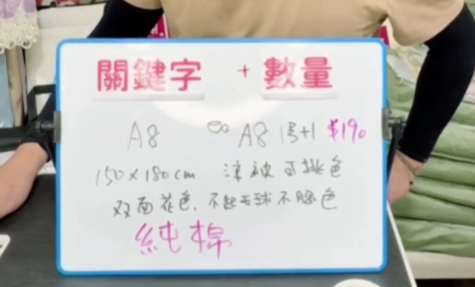 關鍵字 + 數量
A8 ∞ A8 1号+1 $190
150×180cm 涼被可挑色
双面花色、不起毛球不脱色
純棉